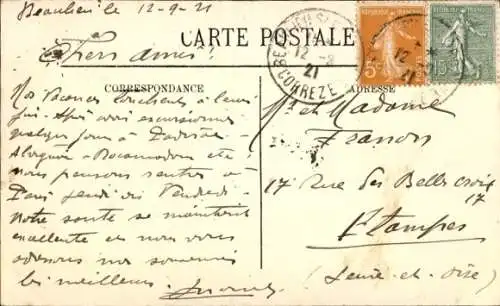 Beaulieu le 12-9-21
CARTE POSTALE
CORRESPONDANCE
ADRESSE
Chers amis!
Nos Vacances touchent à leur
fin. Après avoir excursionné
quelques jours à Padirac,
Rocamadour etc
nous pensons rentrer à
Paris jeudi ou Vendredi.
Notre santé se maintient
excellente et nous vous
adressons nos
les meilleurs.
Mr et Madame
François
17 Rue des Belles Croix
17
Etampes
(Seine-et-Oise)
CORREZE
12 -9
21
5c
15c